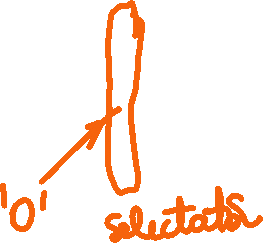 '0'
selectors